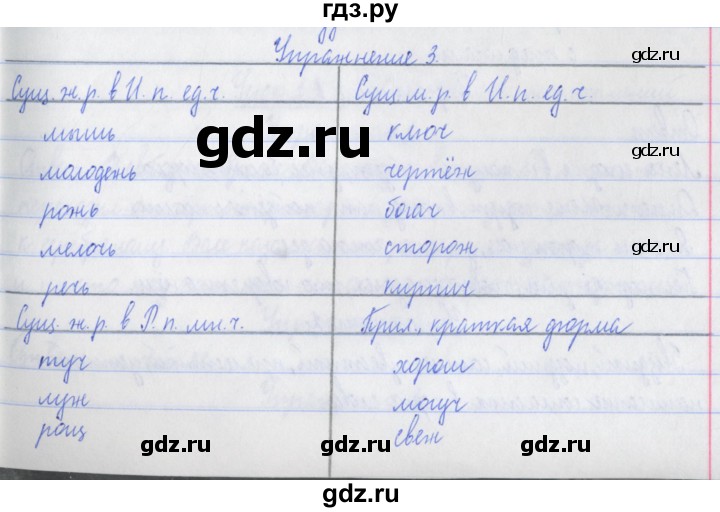 гдз.ру
Упражнение 3.
gdz.ru
gdz.ru
Сущ. ж. р. в И. п. ед. ч.
Сущ. м. р. в И. п. ед. ч.
мышь
ключ
gdz.ru
gdz.ru
молодёжь
чертёж
рожь
богач
мелочь
сторож
gdz.ru
речь
кирпич
Сущ. ж. р. в Р. п. мн. ч.
Прил., краткая форма
туч
хорош
луж
могуч
рощ
свеж
gdz.ru
gdz.ru
gdz.ru